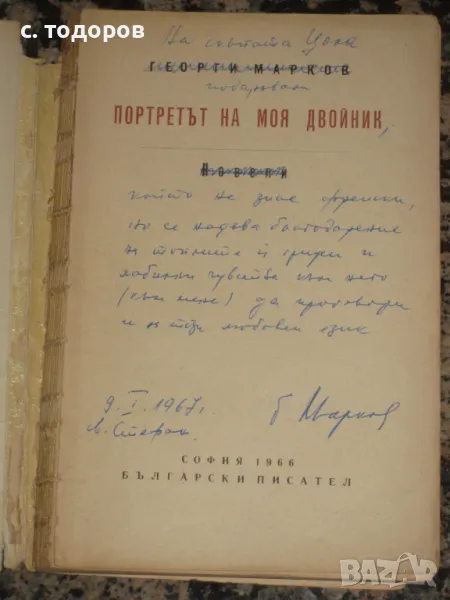 с. тодоров
На Цона
ГЕОРГИ МАРКОВ
подарявам
ПОРТРЕТЪТ НА МОЯ ДВОЙНИК,
Новели
който не знае френски,
но се надява благодарение
на топлите ѝ грижи и
любовни чувства към него
(към мене) да проговори
и на този любовен език
9. I. 1967 г.
Г. Марков
СОФИЯ 1966
БЪЛГАРСКИ ПИСАТЕЛ
BAZAR